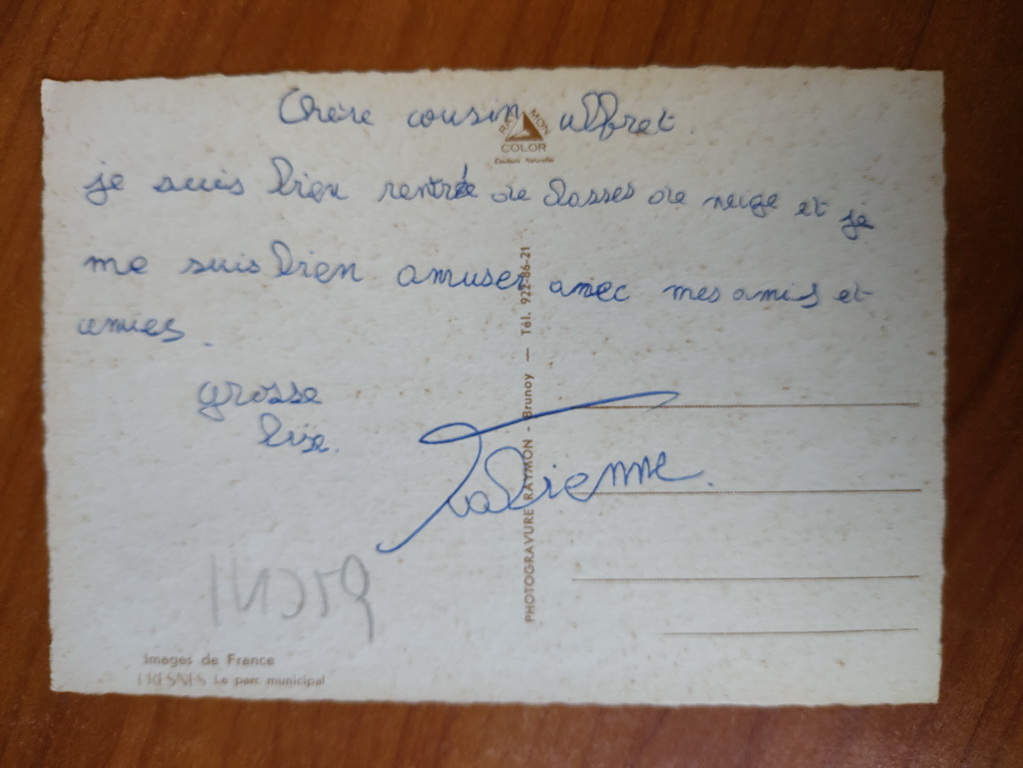 Chère cousin alfret.
RAYMON
COLOR
Couleurs Naturelles
je suis bien rentrée de classes de neige et je
me suis bien amuser avec mes amis et
amies.
grosse
bise.
Fabienne.
PHOTOGRAVURE RAYMON - Brunoy — Tél. 922-86-21
Images de France
FRESNES Le parc municipal